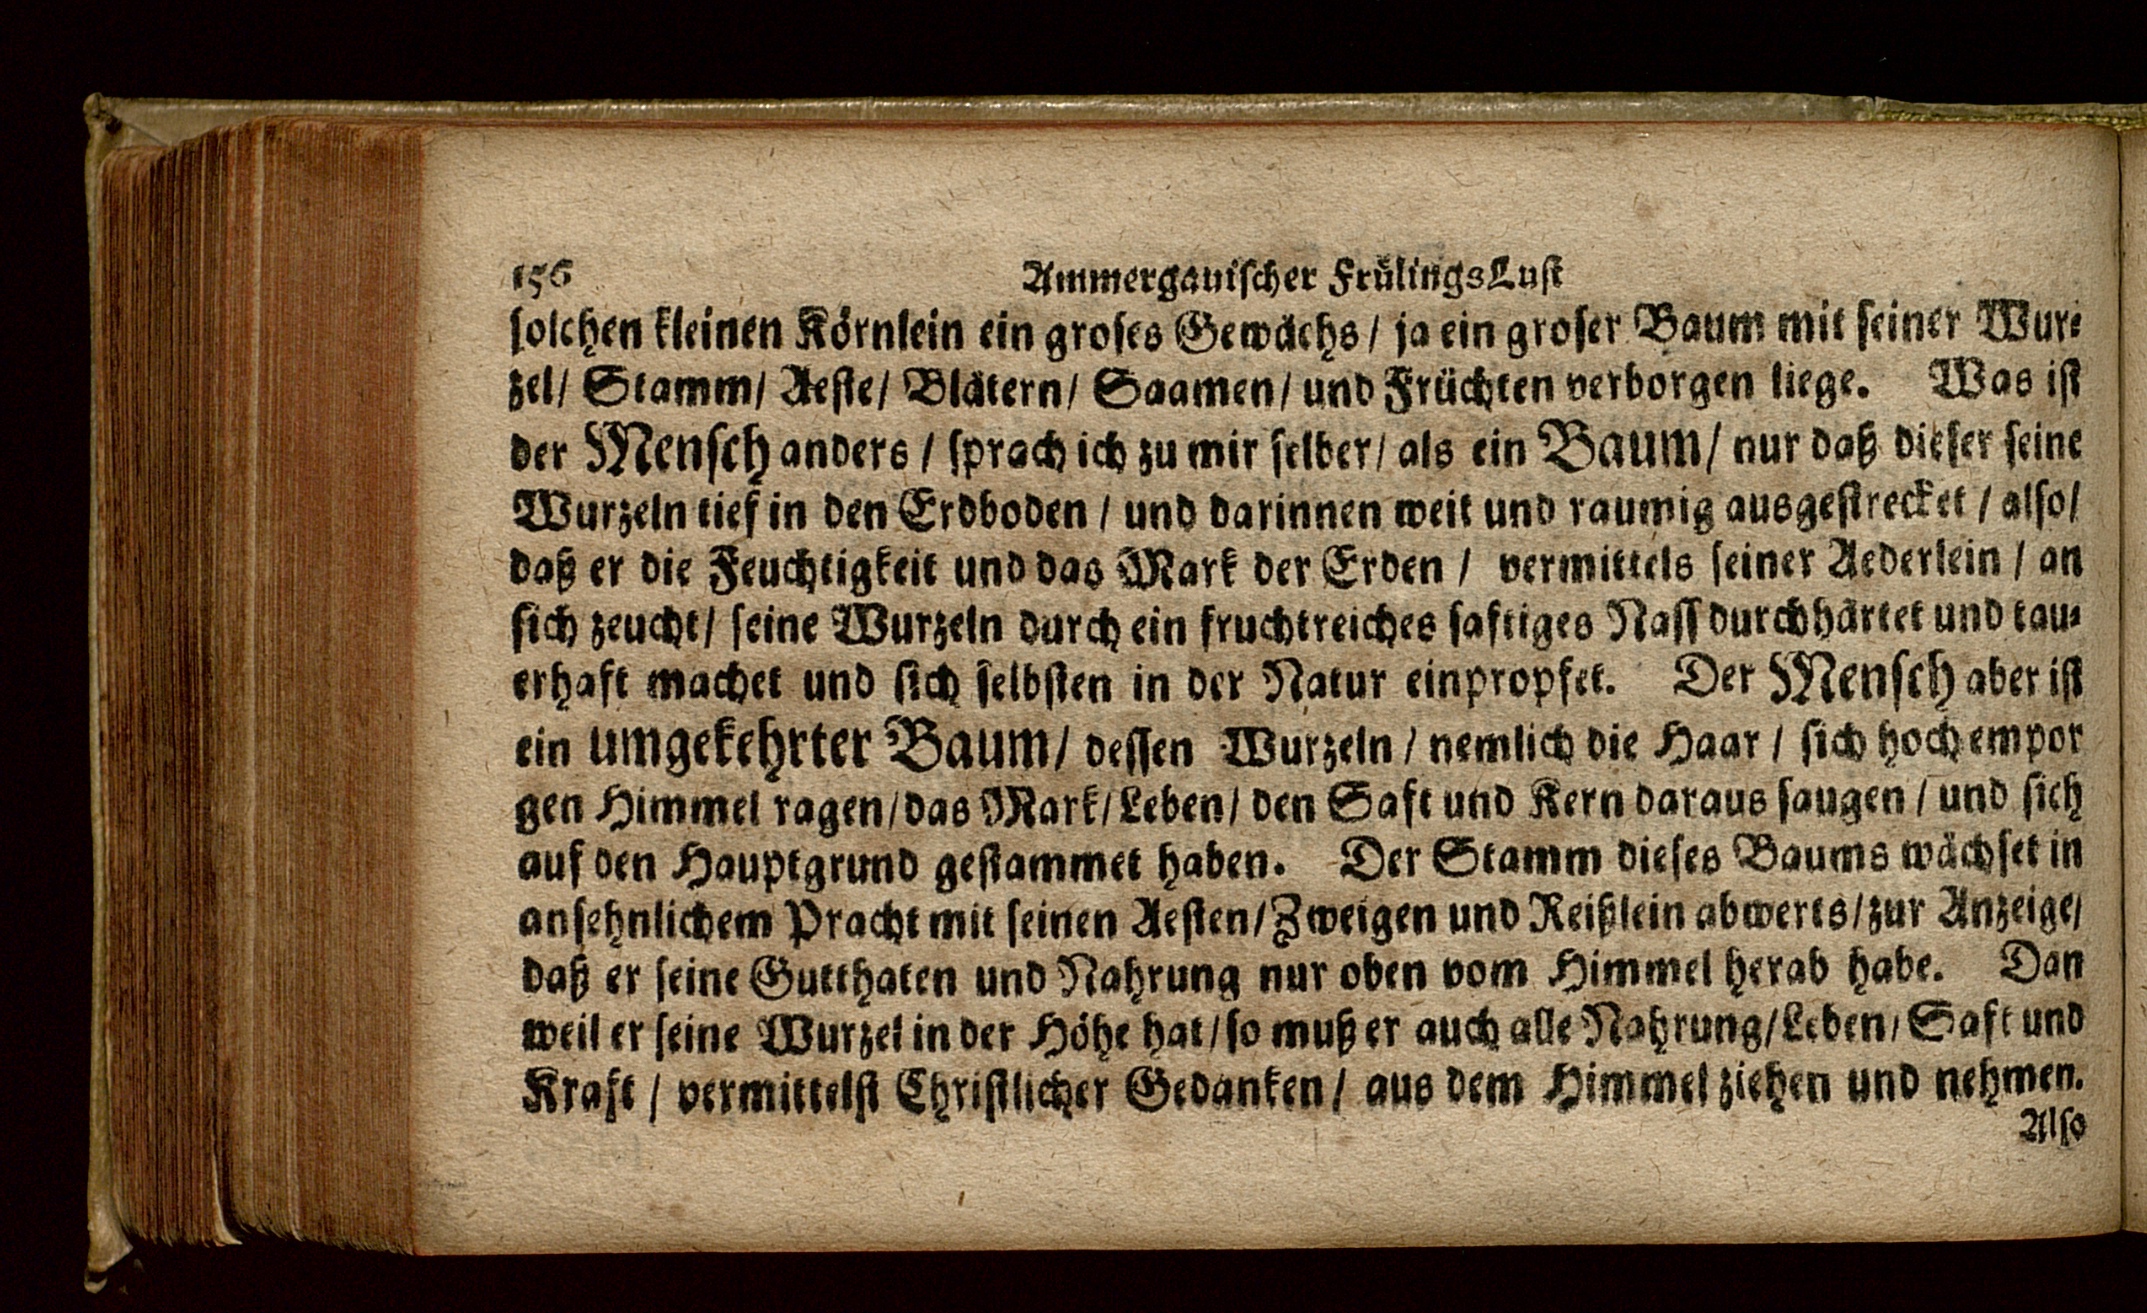 156 Ammergauiſcher FrülingsLuſt
ſolchen kleinen Körnlein ein groſes Gewächs / ja ein groſer Baum mit ſeiner Wur⸗
zel / Stamm / Aeſte / Blätern / Saamen / und Früchten verborgen liege. Was iſt
der Menſch anders / ſprach ich zu mir ſelber / als ein Baum / nur daß dieſer ſeine
Wurzeln tief in den Erdboden / und darinnen weit und raumig ausgeſtrecket / alſo /
daß er die Feuchtigkeit und das Mark der Erden / vermittels ſeiner Aederlein / an
ſich zeucht / ſeine Wurzeln durch ein fruchtreiches ſaftiges Naſſ durchhärtet und tau⸗
erhaft machet und ſich ſelbſten in der Natur einpropfet. Der Menſch aber iſt
ein umgekehrter Baum / deſſen Wurzeln / nemlich die Haar / ſich hoch empor
gen Himmel ragen / das Mark / Leben / den Saft und Kern daraus ſaugen / und ſich
auf den Hauptgrund geſtammet haben. Der Stamm dieſes Baums wächſet in
anſehnlichem Pracht mit ſeinen Aeſten / Zweigen und Reißlein abwerts / zur Anzeige /
daß er ſeine Gutthaten und Nahrung nur oben vom Himmel herab habe. Dan
weil er ſeine Wurzel in der Höhe hat / ſo muß er auch alle Nahrung / Leben / Saft und
Kraft / vermittelſt Chriſtlicher Gedanken / aus dem Himmel ziehen und nehmen.
Alſo